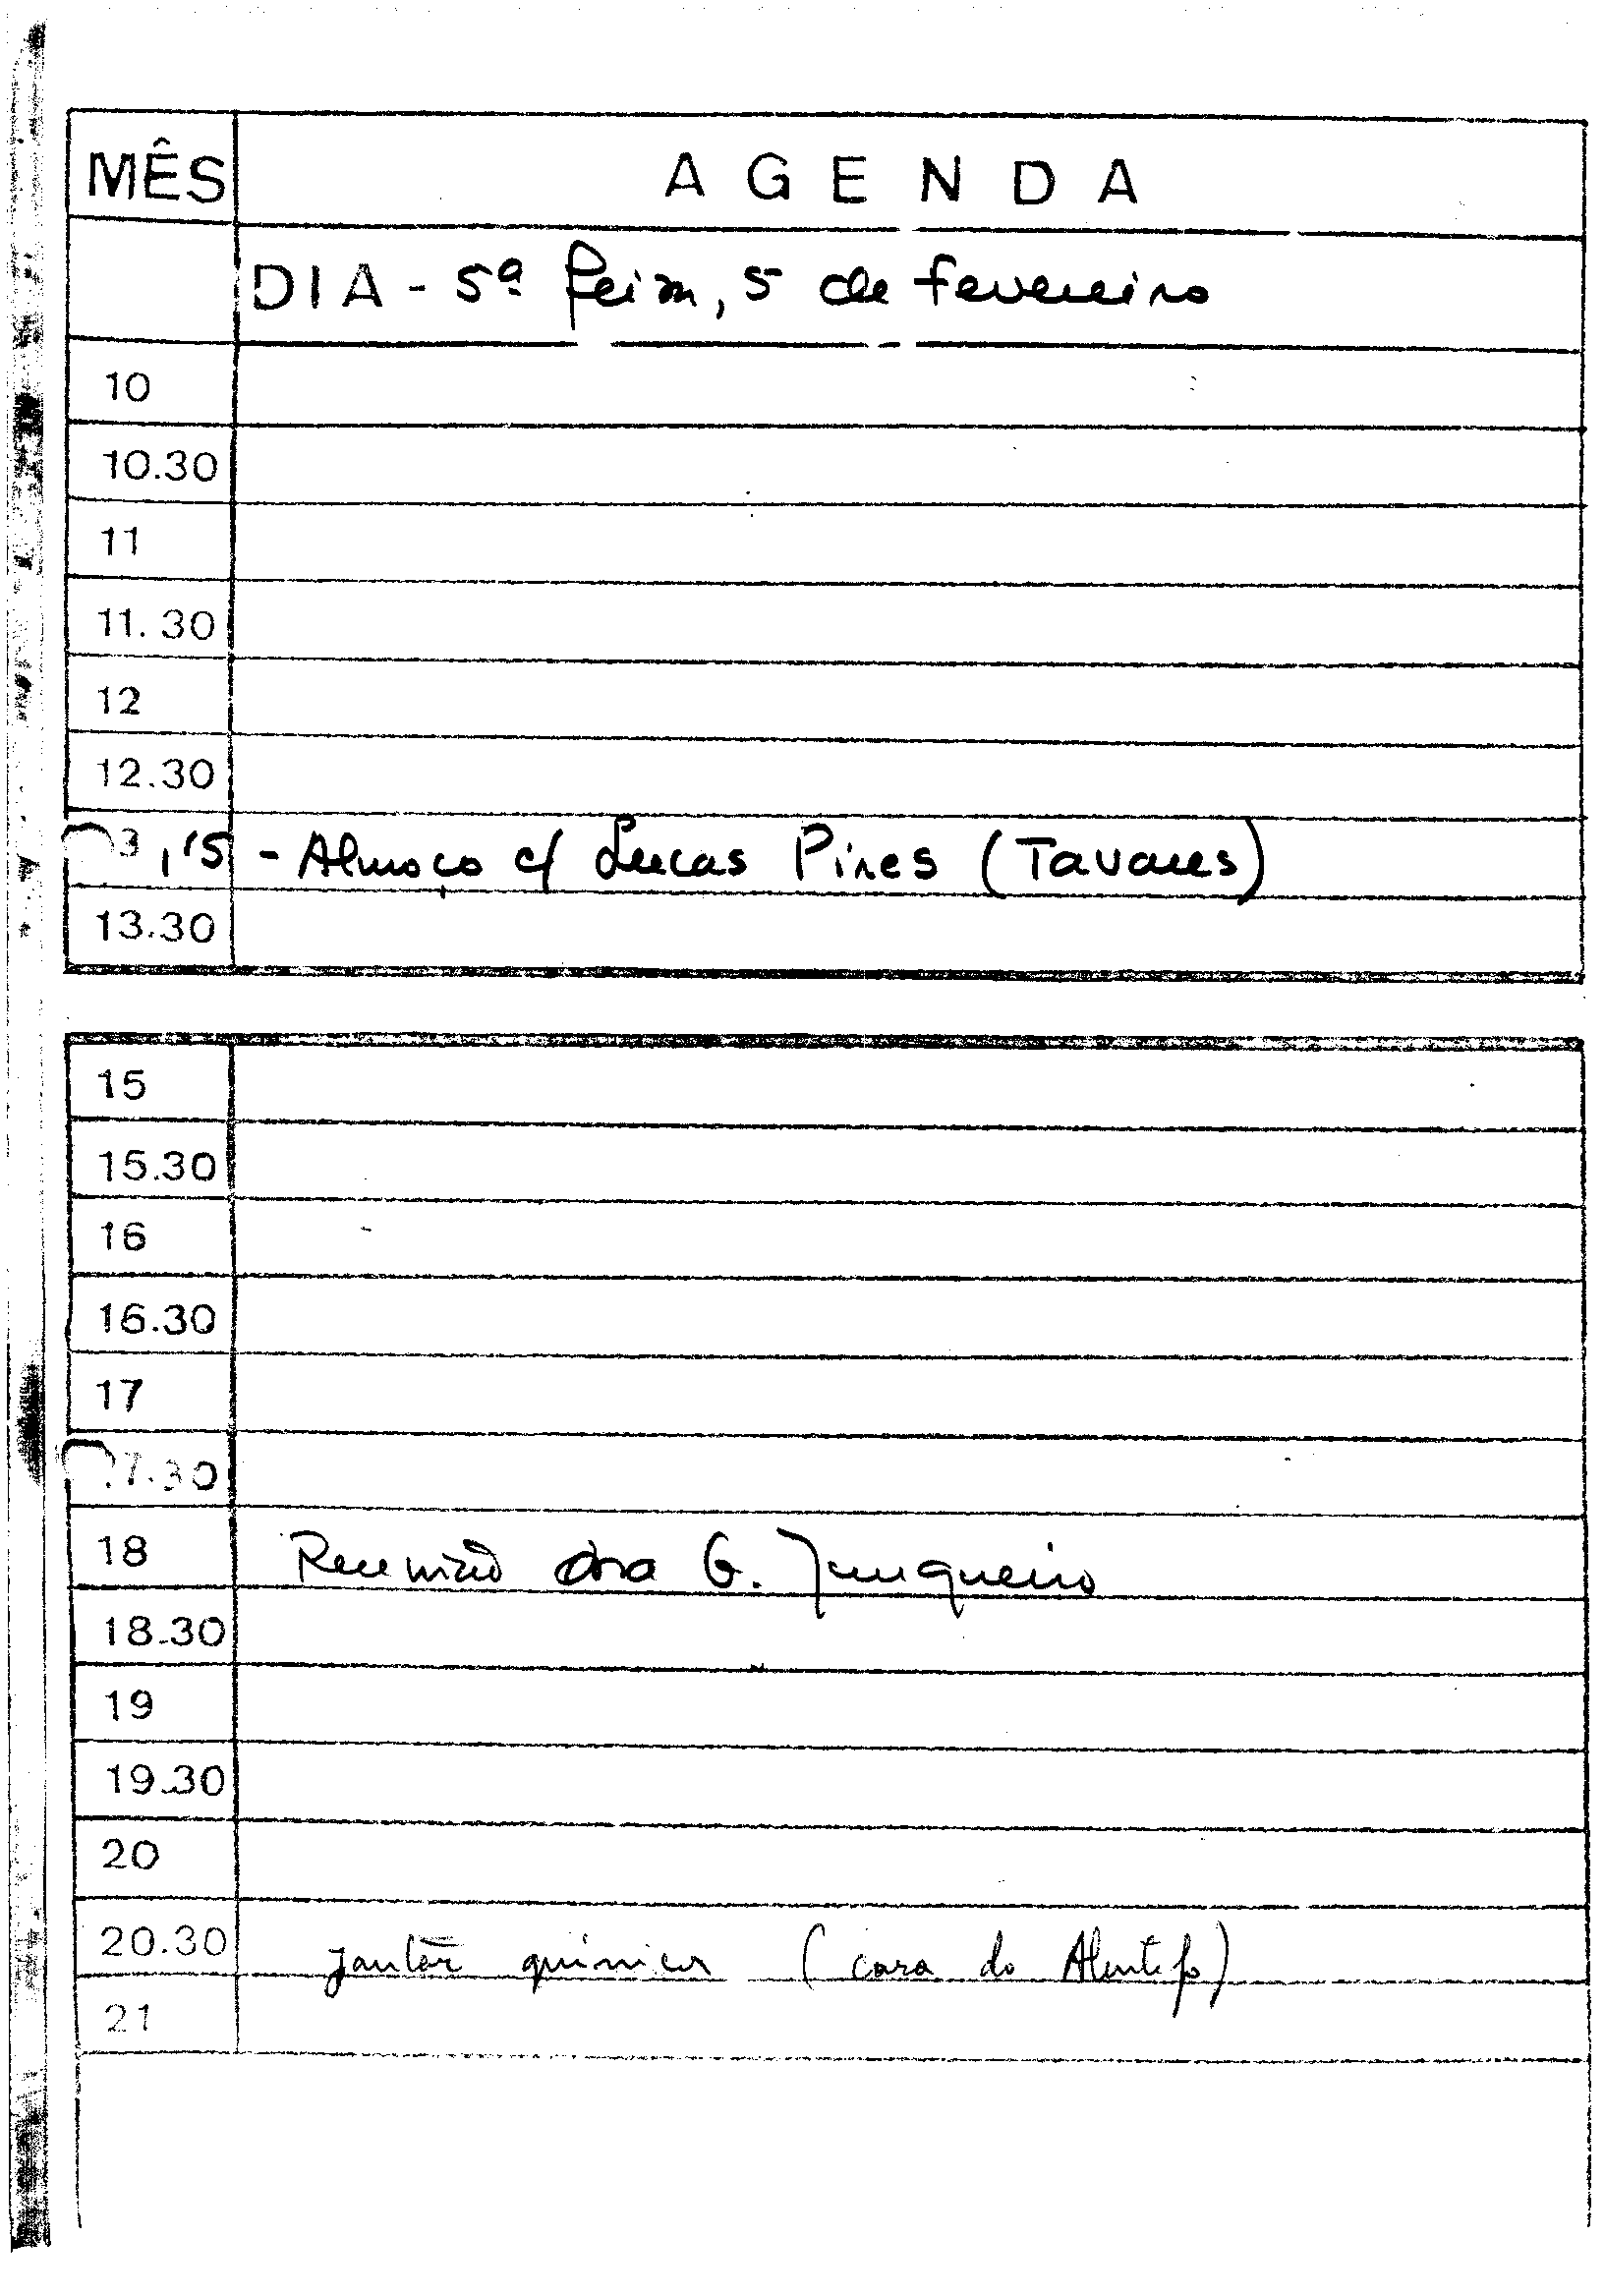 MÊS A G E N D A
DIA - 5ª feira, 5 de fevereiro
10
10.30
11
11.30
12
12.30
13,15 - Almoço c/ Lucas Pires (Tavares)
13.30
15
15.30
16
16.30
17
17.30
18 Reunião G. Junqueiro
18.30
19
19.30
20
20.30 jantar (casa do Alentejo)
21